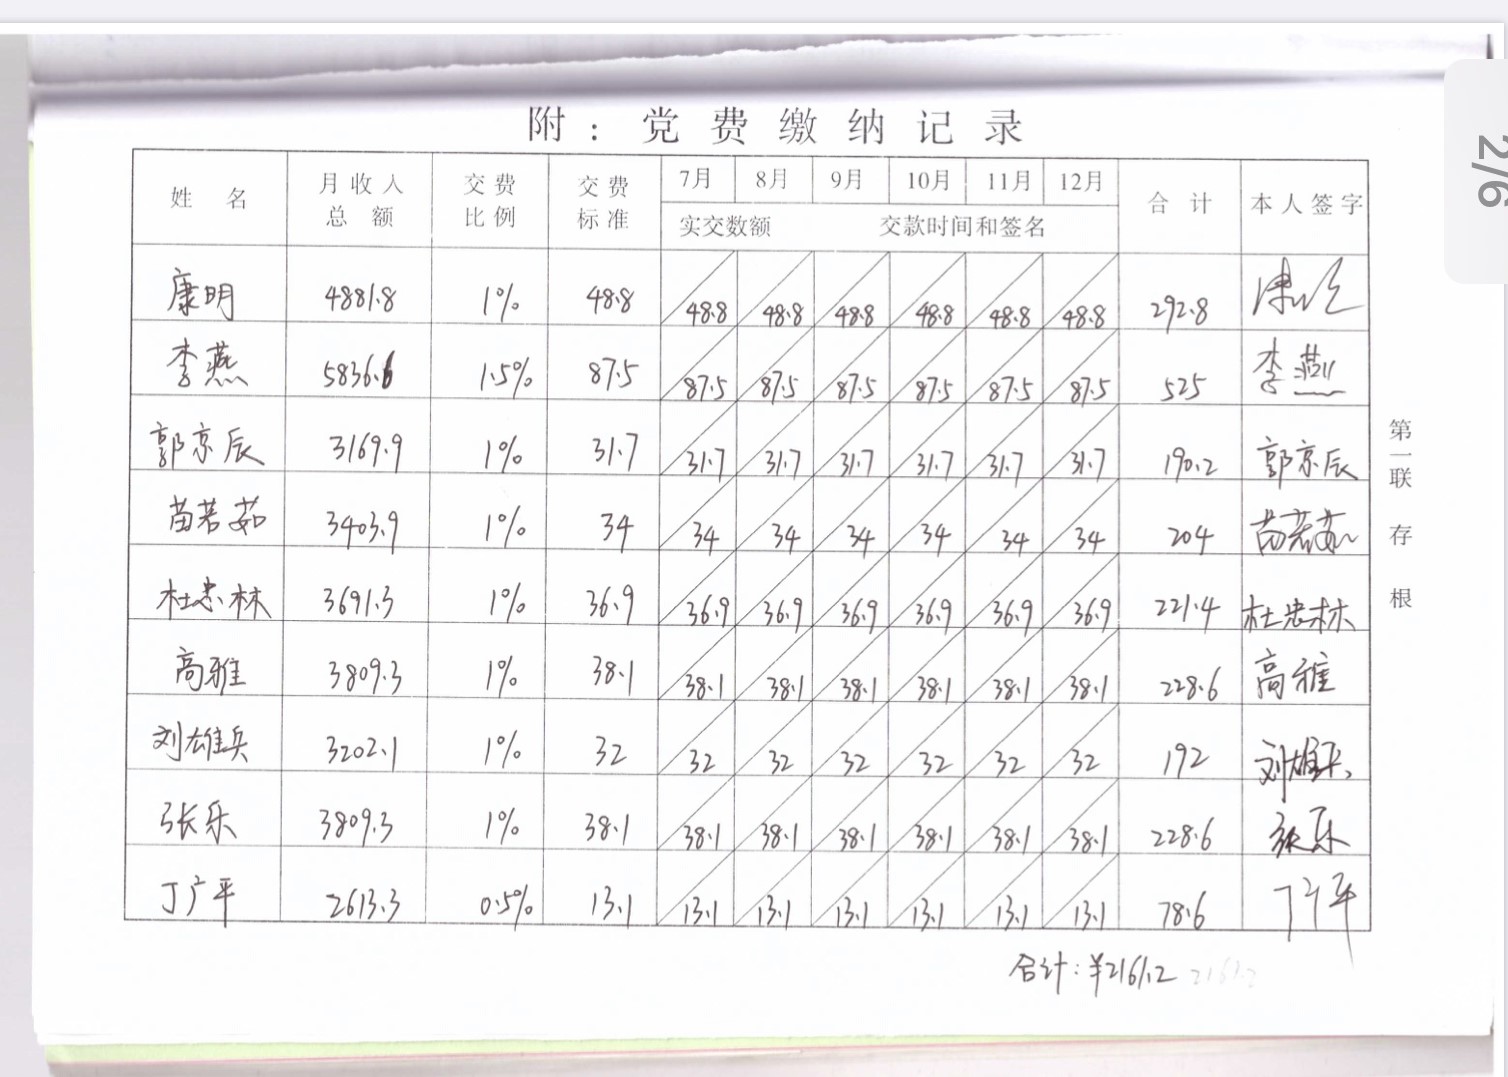 附：党费缴纳记录
姓 名 月收入总额 交费比例 交费标准 7月 8月 9月 10月 11月 12月 合 计 本人签字
实交数额 交款时间和签名
康明 4881.8 1% 48.8 48.8 48.8 48.8 48.8 48.8 48.8 292.8
李燕 5836.6 1.5% 87.5 87.5 87.5 87.5 87.5 87.5 87.5 525 李燕
郭京辰 3169.9 1% 31.7 31.7 31.7 31.7 31.7 31.7 31.7 190.2 郭京辰
苗若茹 3403.9 1% 34 34 34 34 34 34 34 204 苗若茹
杜忠林 3691.3 1% 36.9 36.9 36.9 36.9 36.9 36.9 36.9 221.4 杜忠林
高雅 3809.3 1% 38.1 38.1 38.1 38.1 38.1 38.1 38.1 228.6 高雅
刘雄兵 3202.1 1% 32 32 32 32 32 32 32 192 刘雄兵
张乐 3809.3 1% 38.1 38.1 38.1 38.1 38.1 38.1 38.1 228.6 张乐
丁广平 2613.3 0.5% 13.1 13.1 13.1 13.1 13.1 13.1 13.1 78.6 丁广平
合计：¥2161.2 2161.2
第一联 存根
2/6